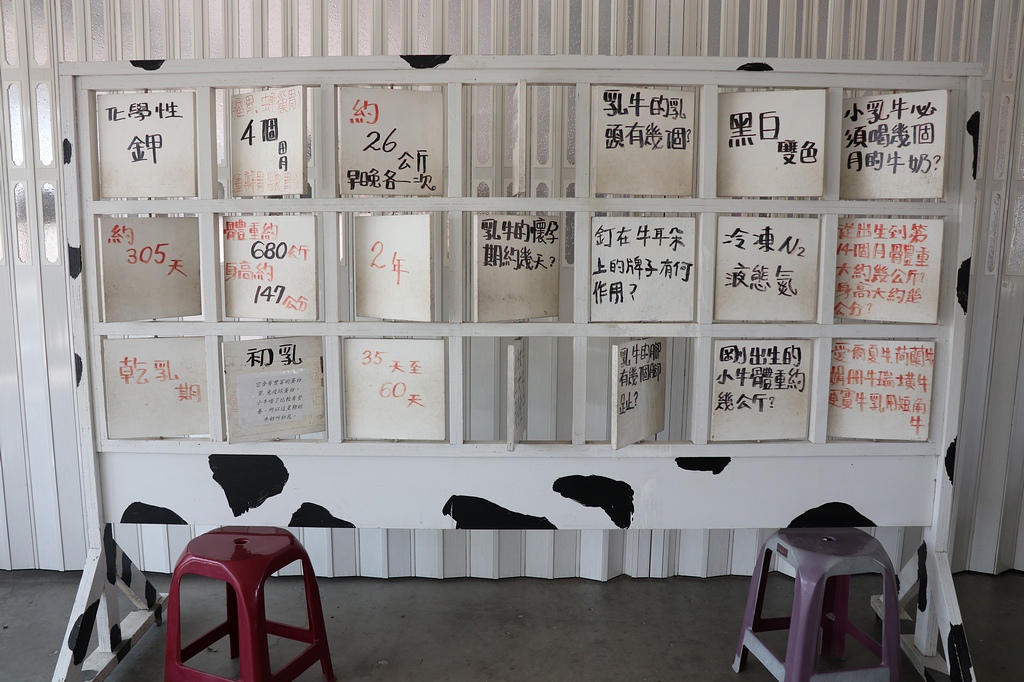 化學性
鉀
4個
月
約
26
公斤
早晚各一次。
乳牛的乳
頭有幾個?
黑白
雙色
小乳牛必
須喝幾個
月的牛奶?
約
305天
體重約
680公斤
身高約
147公分
2年
乳牛的懷孕
期約幾天?
釘在牛耳朵
上的牌子有何
作用?
冷凍N2
液態氮
從出生到第
14個月體重
大約幾公斤?
身高大約幾
公分?
乾乳
期
初乳
35天至
60天
乳牛的腳
有幾個腳
趾?
剛出生的
小牛體重約
幾公斤?
愛爾夏牛荷蘭牛
娟珊牛瑞士牛
更賽牛乳用短角
牛